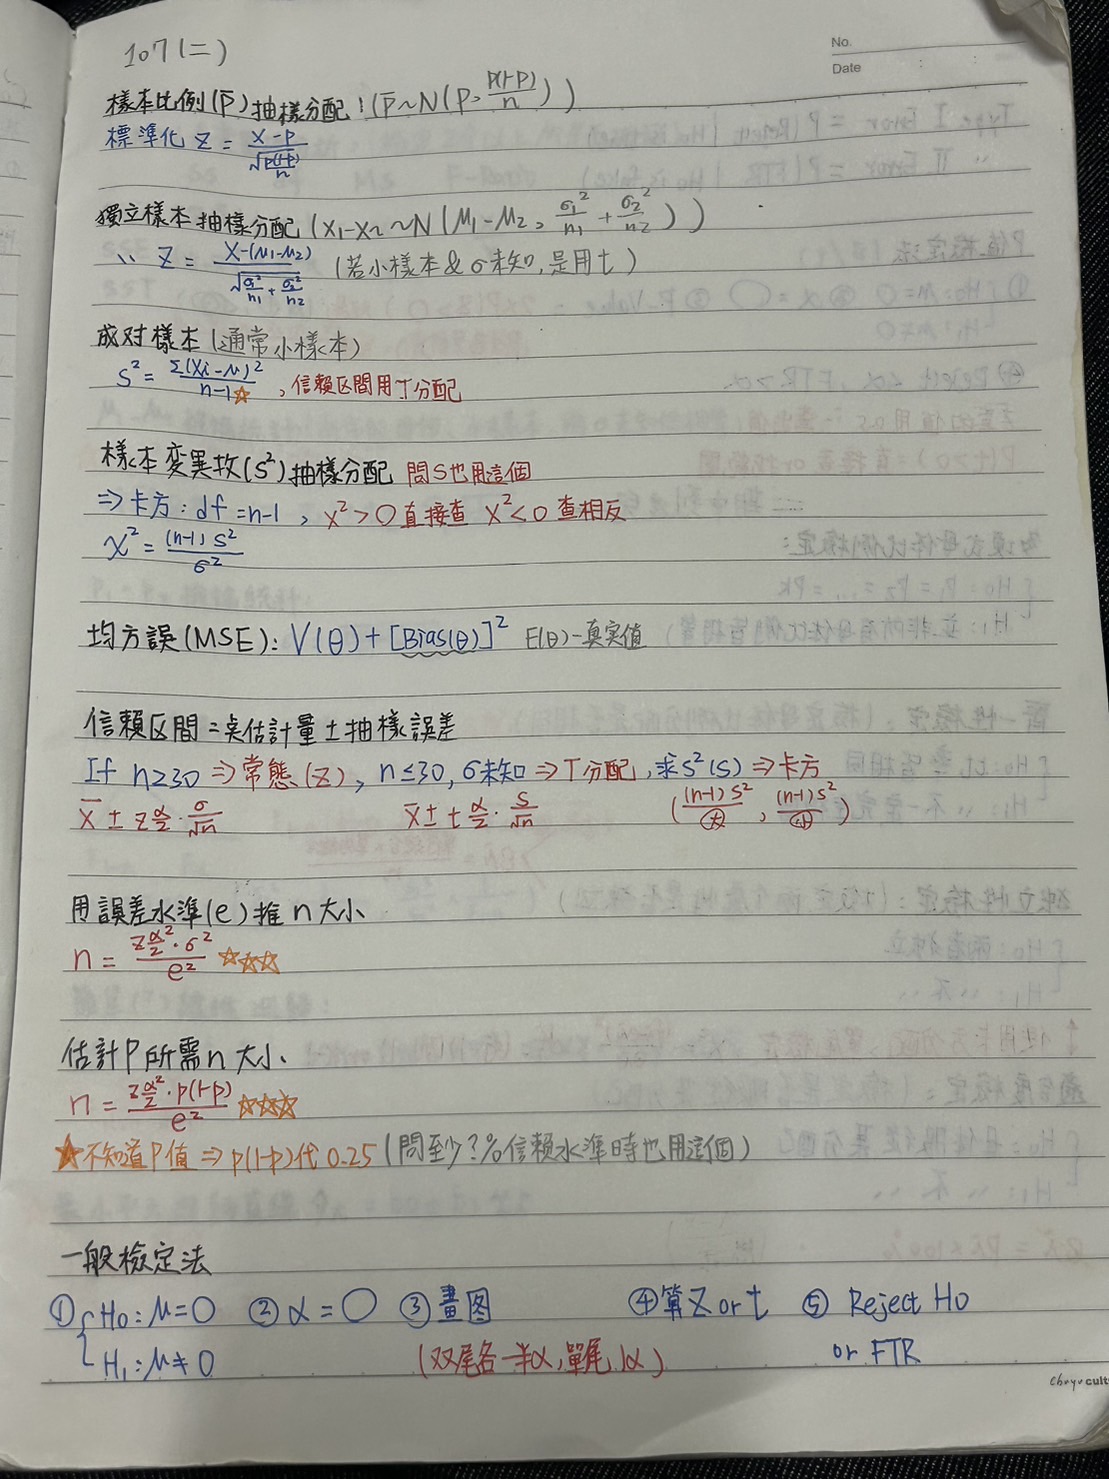 107(二)
No.
Date
樣本比例(p̄)抽樣分配:(p̄~N(P, P(1-P)/n))
標準化 Z = (x-p)/√(p(1-p)/n)
獨立樣本抽樣分配(x₁-x₂~N(M₁-M₂, σ₁²/n₁ + σ₂²/n₂))
〃 Z = (x-(M₁-M₂))/√(σ₁²/n₁ + σ₂²/n₂) (若小樣本&σ未知,是用t)
成对樣本(通常小樣本)
S² = Σ(xi-M)²/(n-1)☆, 信賴区間用T分配
樣本変異数(S²)抽樣分配 問S也用這個
⇒卡方: df=n-1, x²>0直接查 x²<0查相反
χ² = (n-1)S²/σ²
均方誤(MSE): V(θ)+[Bias(θ)]² E(θ)-真実值
信賴区間=点估計量±抽樣誤差
If n≥30⇒常態(Z), n≤30, σ未知⇒T分配, 求S²(S)⇒卡方
x̄±z α/2·σ/√n x̄±t α/2·S/√n ((n-1)S²/㊅, (n-1)S²/㊉)
用誤差水準(e)推n大小
n = z α/2²·σ²/e² ☆☆☆
估計P所需n大小
n = z α/2²·p(1-p)/e² ☆☆☆
★不知道P值⇒p(1-p)代0.25(問至少?%信賴水準時也用這個)
一般檢定法
①{H₀: M=0 ②α=○ ③畫图 ④算Z or t ⑤ Reject H0
H₁: M≠0 (双尾各一半α,單尾1α) or FTR